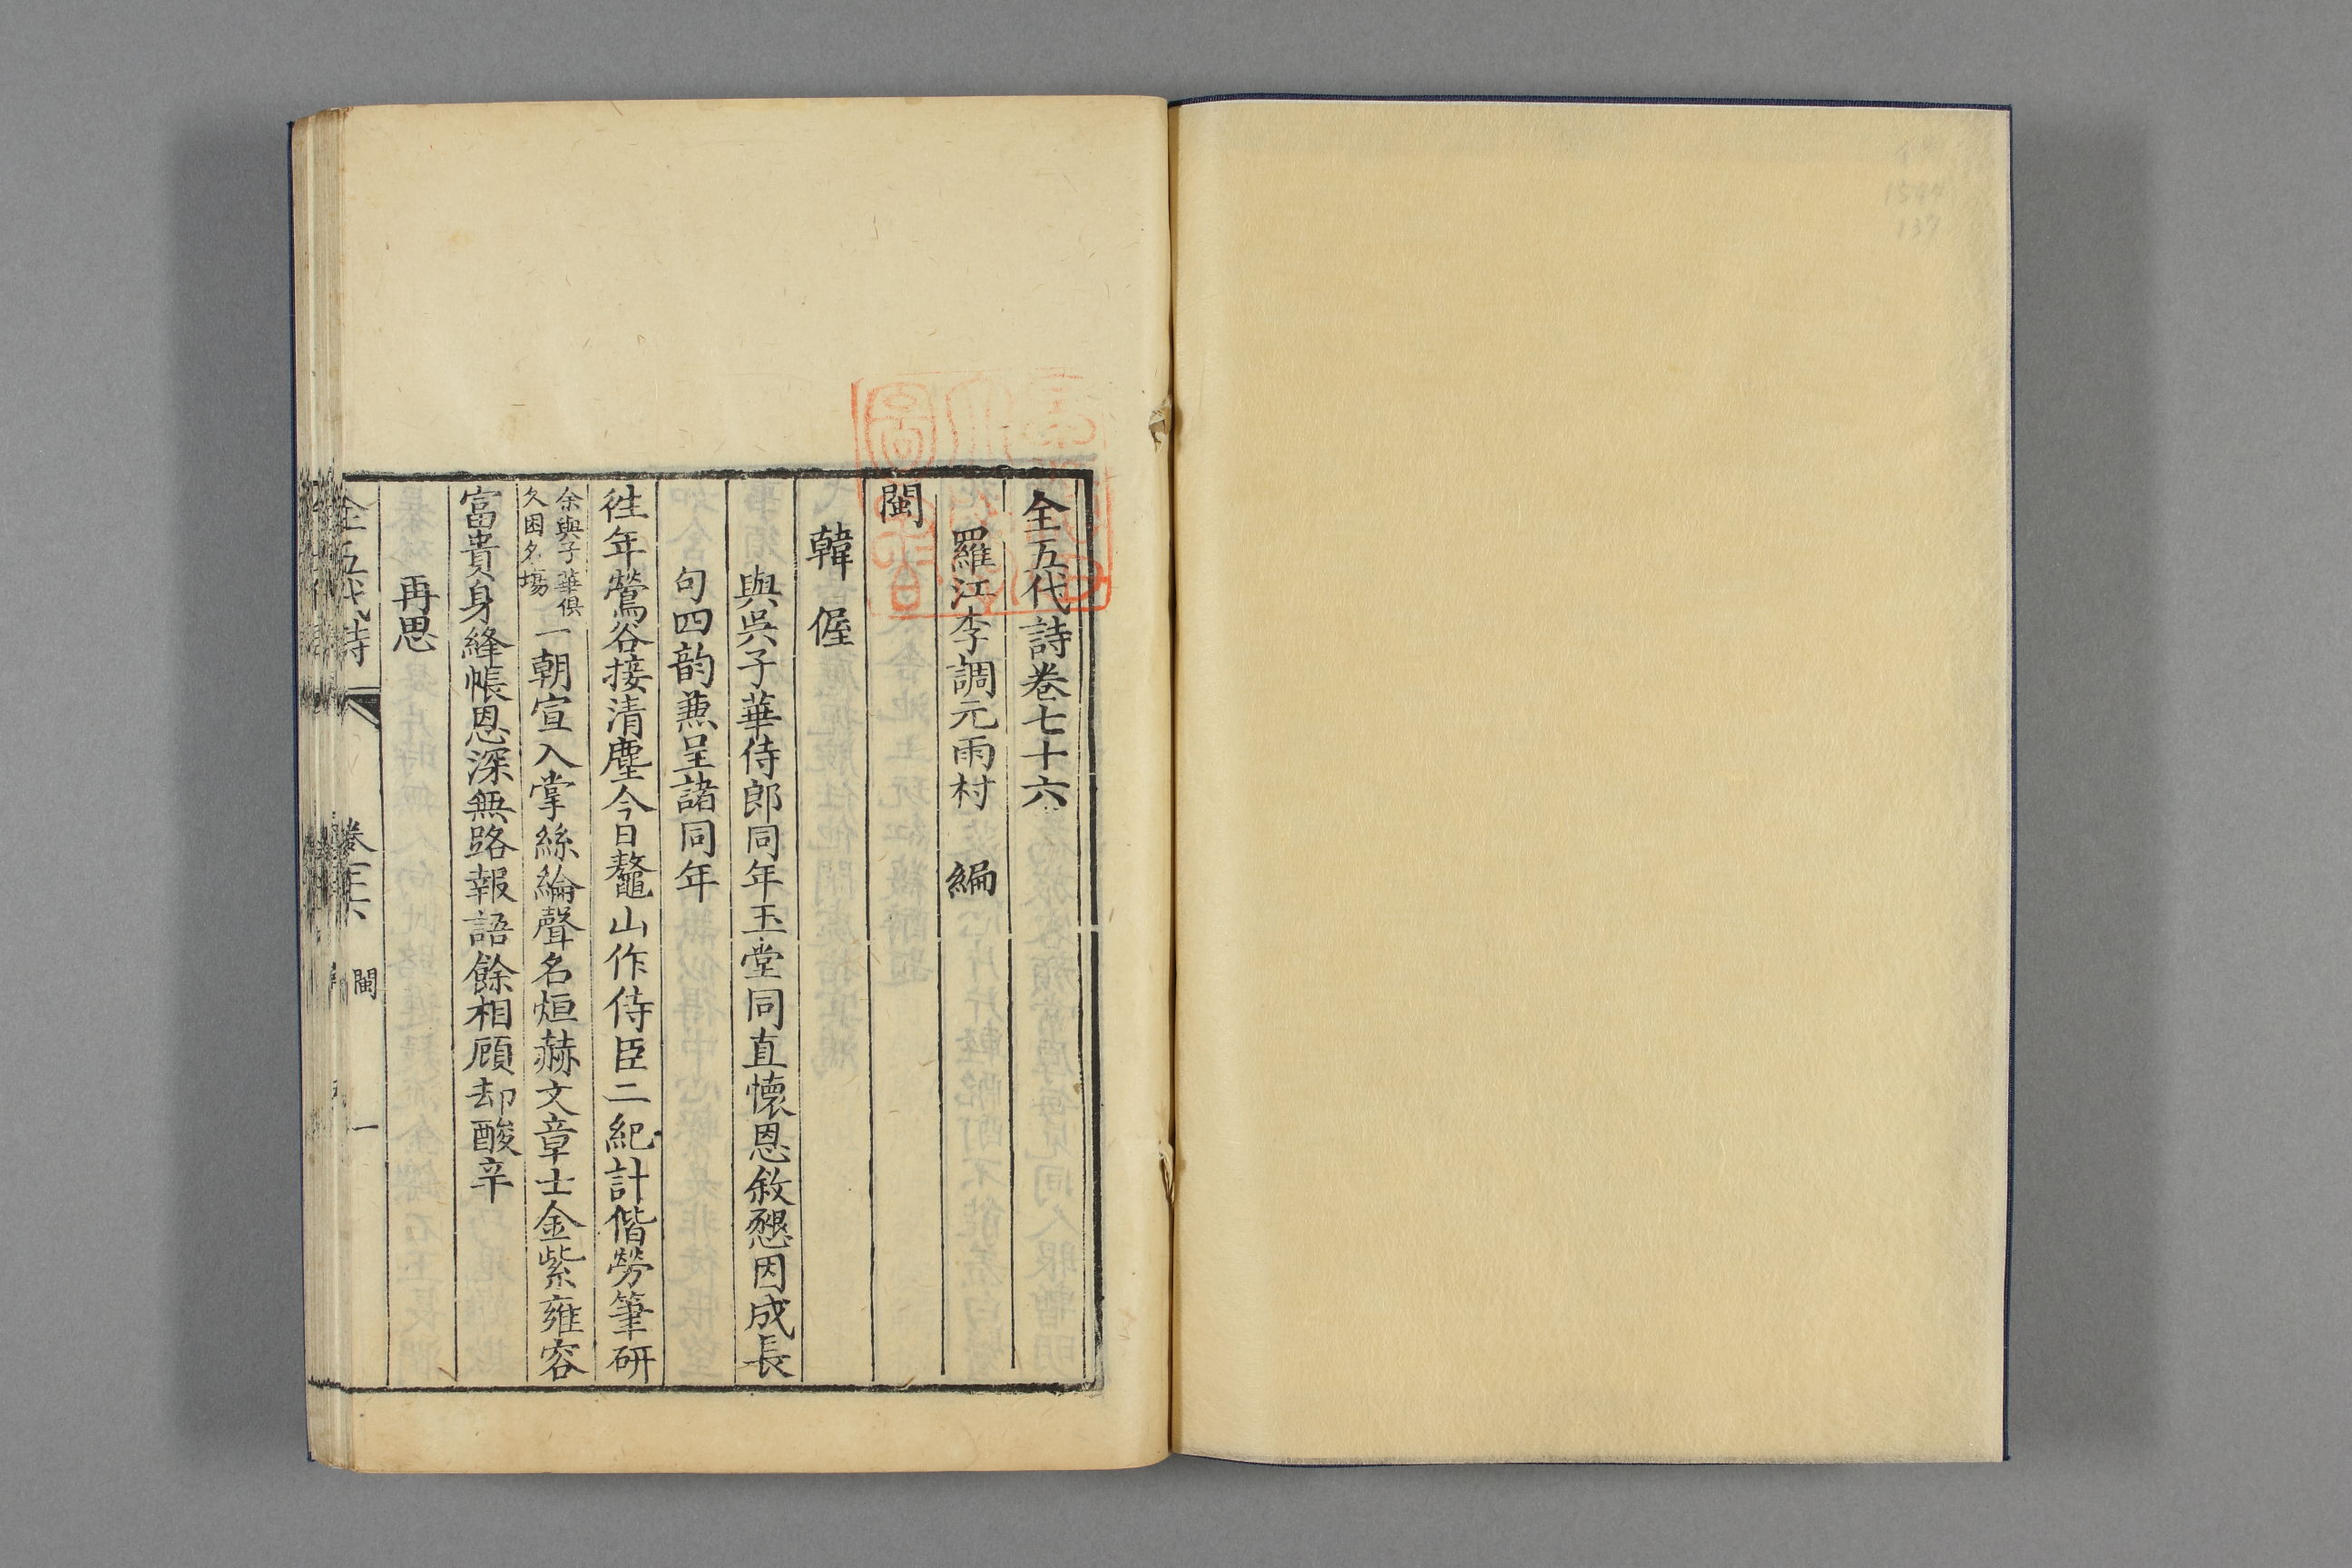 全五代詩卷七十六
羅江李調元雨村 編
閩
韓偓
與吳子華侍郎同年玉堂同直懷恩敘懇因成長
句四韵蒹呈諸同年
徃年鶯谷接清塵今日鼇山作侍臣二紀計偕勞筆研
余與子華俱
久困名塲
一朝宣入掌絲綸聲名烜赫文章士金紫雍容
富貴身絳帳恩深無路報語餘相顧却酸辛
再思
全五代詩
閩
一